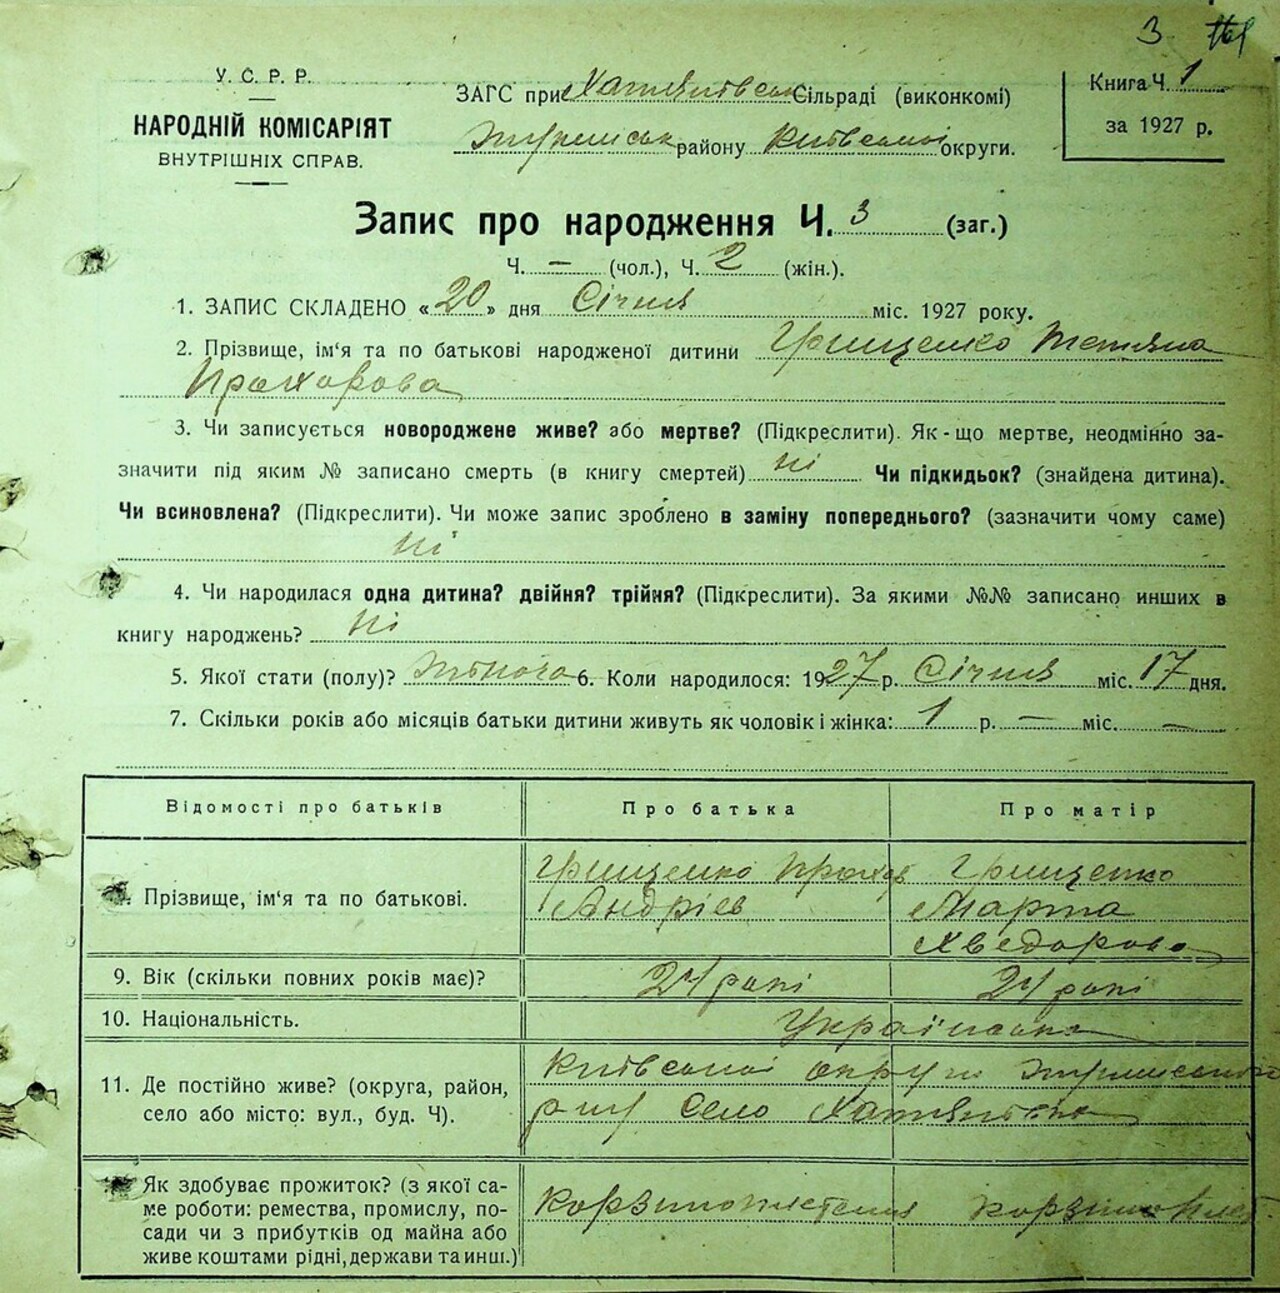 3
У. С. Р. Р.
НАРОДНІЙ КОМІСАРІЯТ
ВНУТРІШНІХ СПРАВ.
ЗАГС при Сільраді (виконкомі)
району Київської округи.
Книга Ч. 1
за 1927 р.
Запис про народження Ч. 3 (заг.)
Ч. — (чол.), Ч. 2 (жін.).
1. ЗАПИС СКЛАДЕНО «20» дня Січня міс. 1927 року.
2. Прізвище, ім'я та по батькові народженої дитини Грищенко Тетяна
Прохорова
3. Чи записується новороджене живе? або мертве? (Підкреслити). Як-що мертве, неодмінно за-
значити під яким № записано смерть (в книгу смертей) ні Чи підкидьок? (знайдена дитина).
Чи всиновлена? (Підкреслити). Чи може запис зроблено в заміну попереднього? (зазначити чому саме)
ні
4. Чи народилася одна дитина? двійня? трійня? (Підкреслити). За якими №№ записано инших в
книгу народжень? ні
5. Якої стати (полу)? жіночо 6. Коли народилося: 1927 р. Січня міс. 17 дня.
7. Скільки років або місяців батьки дитини живуть як чоловік і жінка: 1 р. — міс. —
Відомості про батьків Про батька Про матір
Прізвище, ім'я та по батькові.
Грищенко Прохор
Андріев
Грищенко
Марта
Хведорова
9. Вік (скільки повних років має)? 24 рокі 24 рокі
10. Національність. Українська
11. Де постійно живе? (округа, район,
село або місто: вул., буд. Ч).
Київської округи
Село
Як здобуває прожиток? (з якої са-
ме роботи: ремества, промислу, по-
сади чи з прибутків од майна або
живе коштами рідні, держави та инш.)